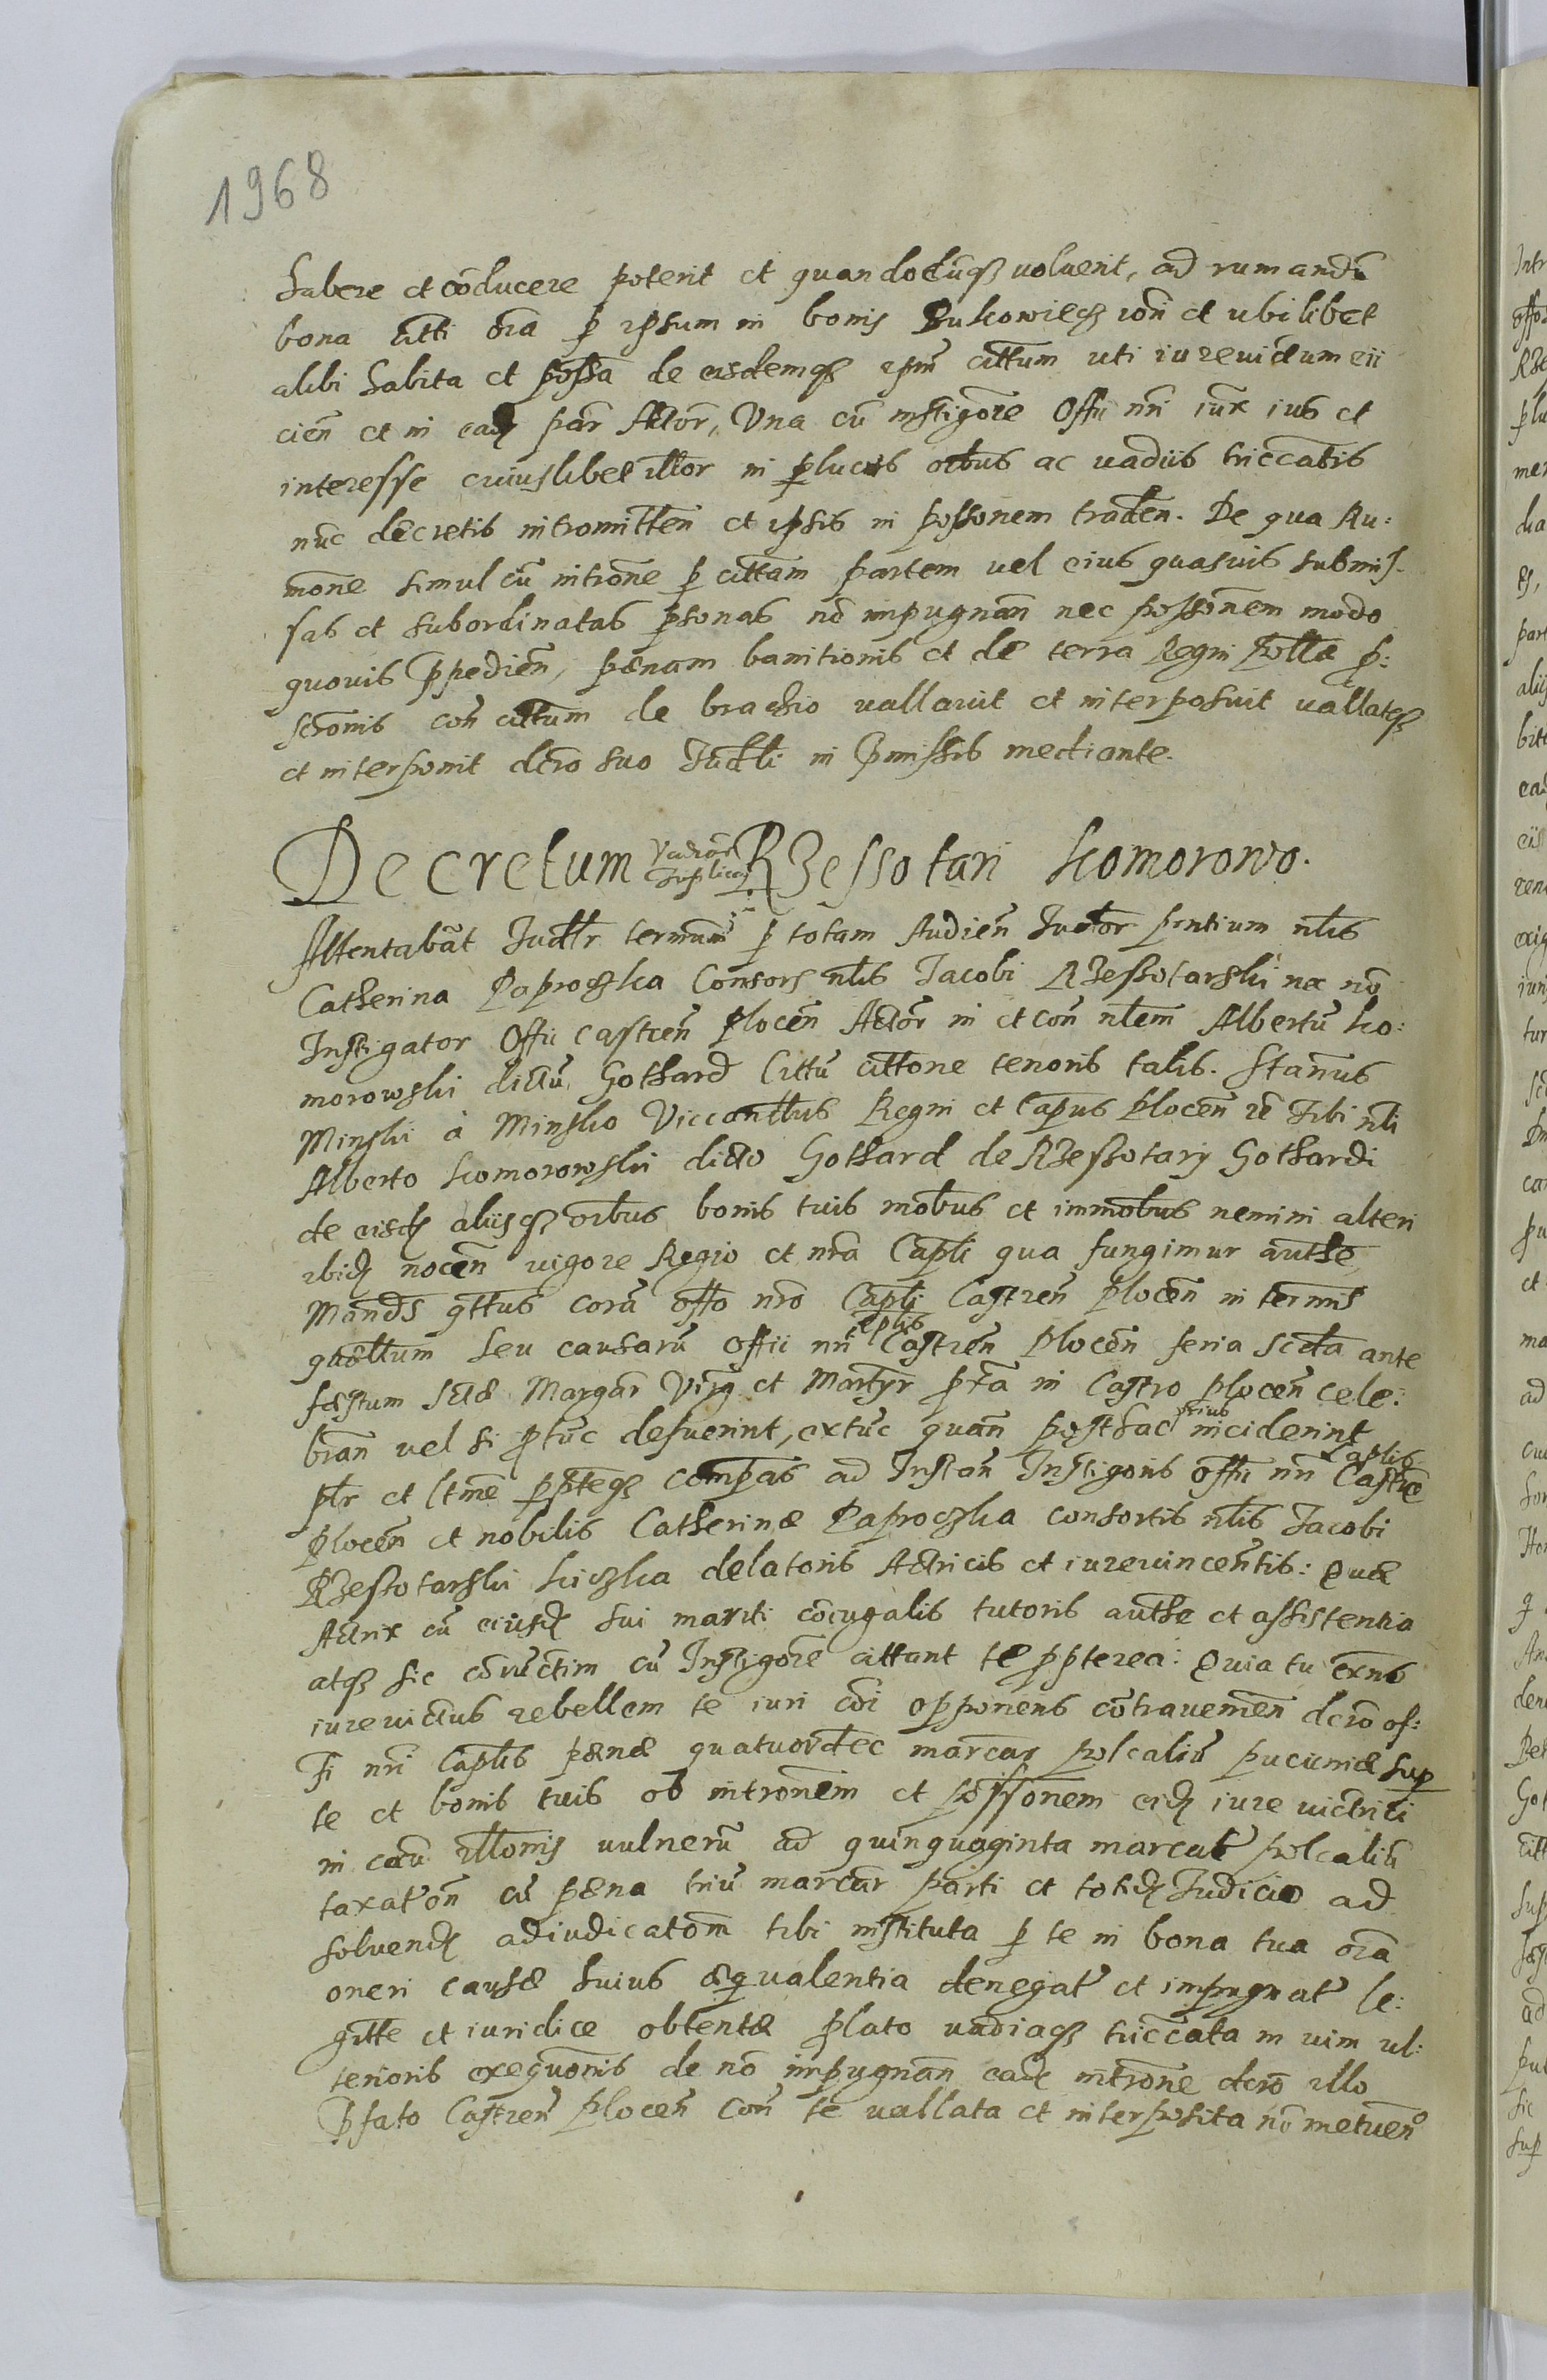 1968
habere et cōducere poterit et quandocūqȝ voluerit, ad rumandū
bona citti ōia p ipsum in bonis Bukowiecȝ iōn et ubilibet
alibi habita et possa de eisdemqȝ ipm cittum uti iurevictum eii
cien et in eadȝ par Actor, Una cū instigore Offii nri iurx ius et
interesse cuiuslibet illor in plucris oibus ac vadiis triccatis
nūc decretis intromitten et ipsis in possonem traden. De qua Ru:
mōne simul cū intrōne p cittam partem vel eius quasvis submis-
sas et subordinatas psonas nō impugnan nec possonem modo
quovis ppedien, pænam banitionis et de terra Regni Pollæ p:
scronis con cittum de brachio vallavit et interposuit vallatqȝ
et interponit dcro suo Iudli in pmissis mediante.
Decretum Vadior Triplicū Rzessotari Komorowo.
Attentabat Iudlr termum p totam Audien Iudor pntium nlis
Catherina Paproczka Consors nlis Jacobi Rzessotarski nec nō
Instigator Offii Castren Plocen Actor in et con nlem Albertū Ko:
morowski dictū Gothard Cittū cittone tenoris talis. Stanus
Minski à Minsko Viccantlus Regni et Capus Plocen rē Tibi nli
Alberto Komorowski dicto Gothard de Rzessotary Gothardi
de eisdȝ aliisqȝ oibus bonis tuis mobus et immobus nemini alteri
ibidȝ nocen vigore Regio et nra Capli qua fungimur authe
Mands qttus corā offo nro Capli Castren Plocen in termis
quællum seu causarū Offii nri Caplis Castren Plocen feria scda ante
fæstum Sctæ Margar Virg et Martyr px̄a in Castro Plocen cele:
bran vel si ptūc defuerint, extūc quan posthac prius inciderint
plr et ltme pptēqȝ compas ad Instan Instigoris offii nri Caplis Castrē
Plocen et nobilis Catherinæ Paproczka consortis nlis Jacobi
Rzessotarski Kiczka delatoris Actricis et iurevincentis: Quæ
Actrix cū eiusdȝ sui mariti cōiugalis tutoris authe et assistentia
atqȝ sic coniūctim cū Instigore cittant te ppterea: Quia tu exns
iurevictus rebellem te iuri cōi opponens contravenien dcro of:
fi nri Caplis pænæ quatuordec marcar polcaliū pucuniæ sup
te et bonis tuis ob intronem et possonem eidȝ iure victrici
in cau illonis vulnerū ad quinquaginta marcat polcaliū
taxaton cū pæna triū marcar parti et totidȝ Iudicio ad
solvendȝ adiudicatom tibi instituta p te in bona tua oia
oneri causæ huius æquvalentia denegat et impugnat le:
gitte et iuridice obtentæ plato vadiaqȝ triccata in vim ul:
terioris exequonis de nō impugnan eadȝ introne dcro illo
pfato Castren Plocen con te vallata et interposita nō metuen